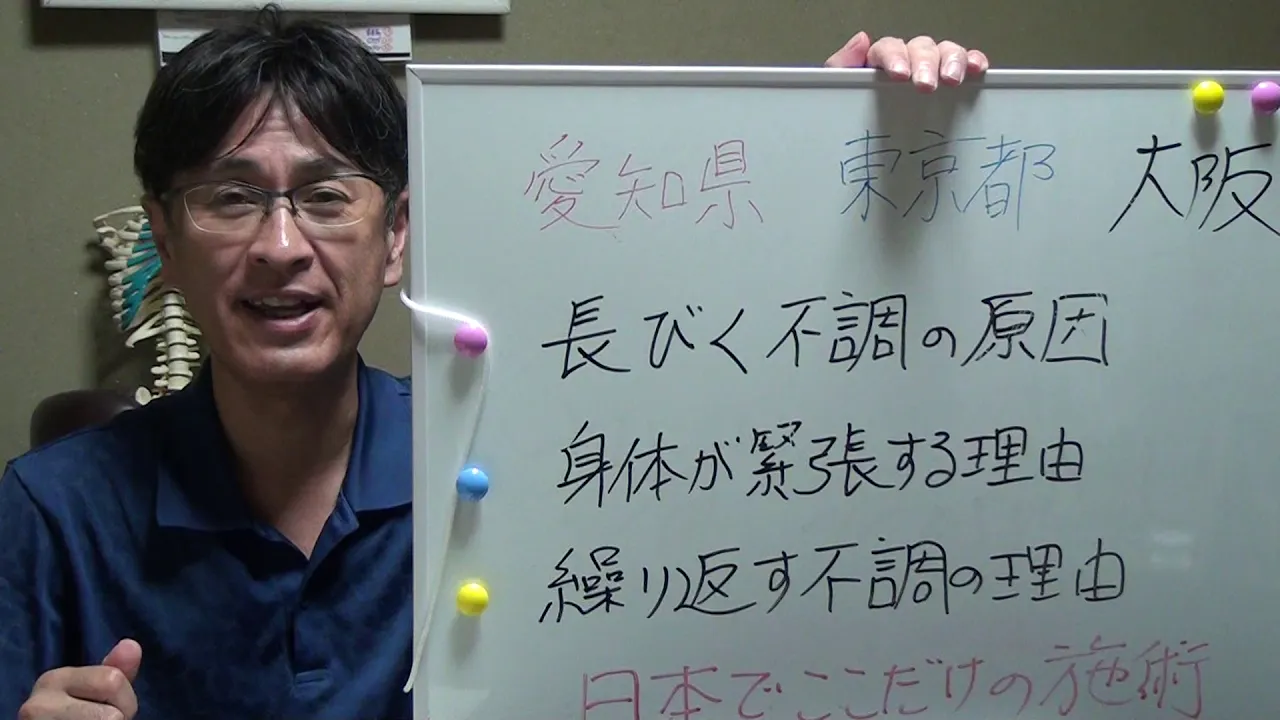 愛知県 東京都 大阪
長びく不調の原因
身体が緊張する理由
繰り返す不調の理由
日本でここだけの施術